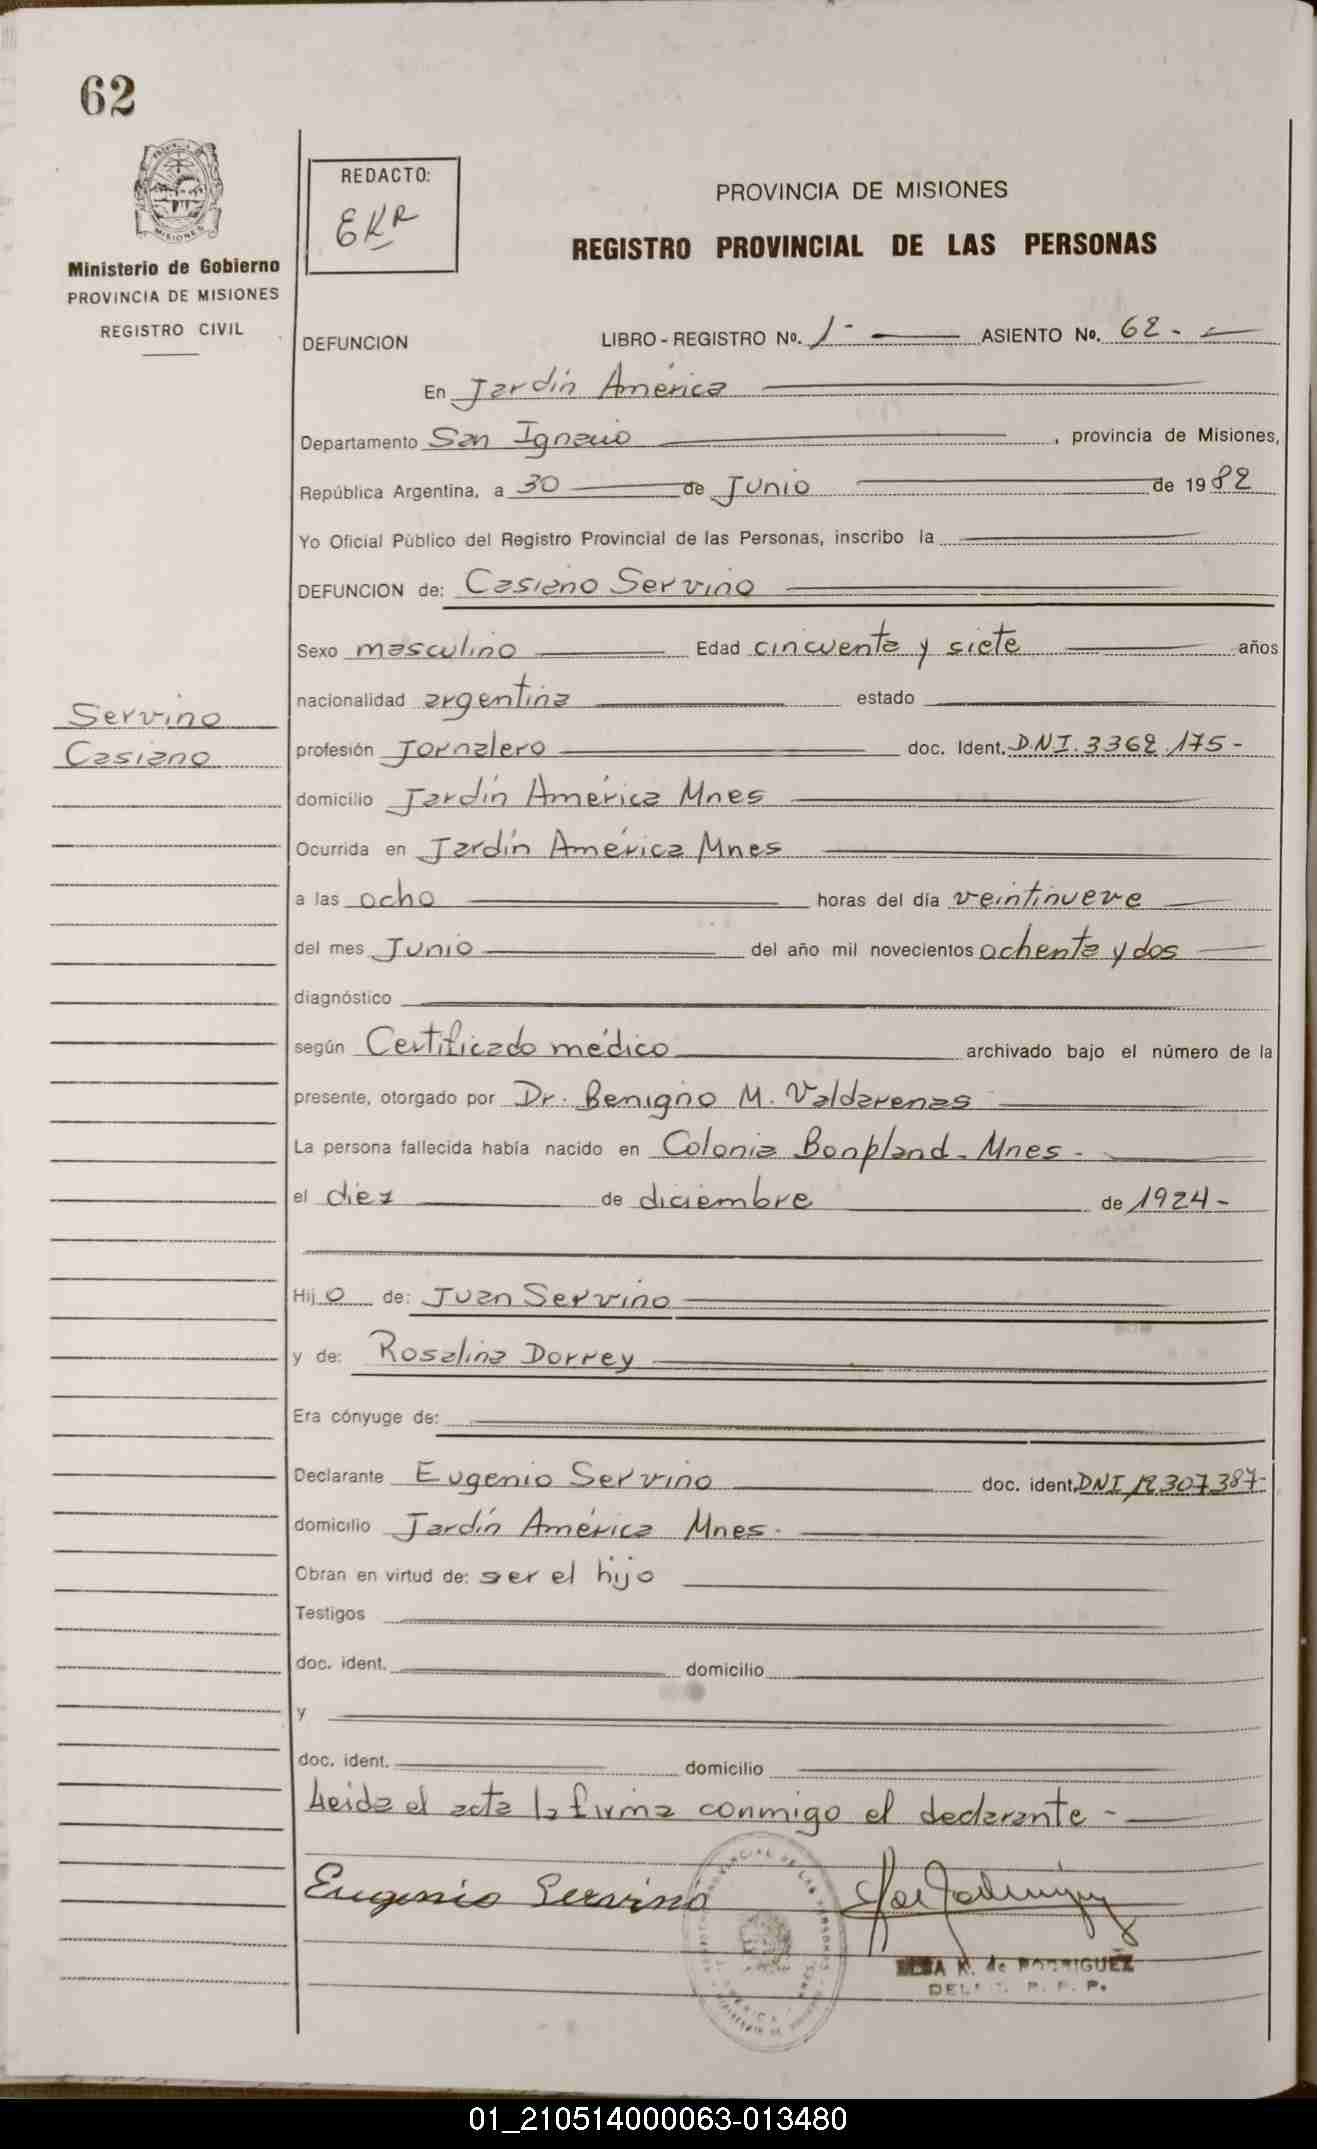 62
REDACTO:
EKR
PROVINCIA DE MISIONES
REGISTRO PROVINCIAL DE LAS PERSONAS
MISIONES
Ministerio de Gobierno
PROVINCIA DE MISIONES
REGISTRO CIVIL
DEFUNCION LIBRO - REGISTRO No. 1 - ASIENTO No. 62 -
En Jardín América
Departamento San Ignacio , provincia de Misiones,
República Argentina, a 30 de Junio de 1982
Yo Oficial Público del Registro Provincial de las Personas, inscribo la
DEFUNCION de: Casiano Servino
Sexo masculino Edad cincuenta y siete años
nacionalidad argentina estado
Servino
Casiano
profesión Jornalero doc. Ident. D.N.I. 3362.175 -
domicilio Jardín América Mnes
Ocurrida en Jardín América Mnes
a las ocho horas del día veintinueve
del mes Junio del año mil novecientos ochenta y dos
diagnóstico
según Certificado médico archivado bajo el número de la
presente, otorgado por Dr. Benigno M. Valdarenas
La persona fallecida había nacido en Colonia Bonpland - Mnes -
el diez de diciembre de 1924 -
Hijo de: Juan Servino
y de: Rosalina Dorrey
Era cónyuge de:
Declarante Eugenio Servino doc. ident. DNI 12.307.387-
domicilio Jardín América Mnes -
Obran en virtud de: ser el hijo
Testigos
doc. ident. domicilio
y
doc. ident. domicilio
Leida el acta la firma conmigo el declarante -
Eugenio Servino
ELSA K. de RODRIGUEZ
R. P. P.
01_210514000063-013480